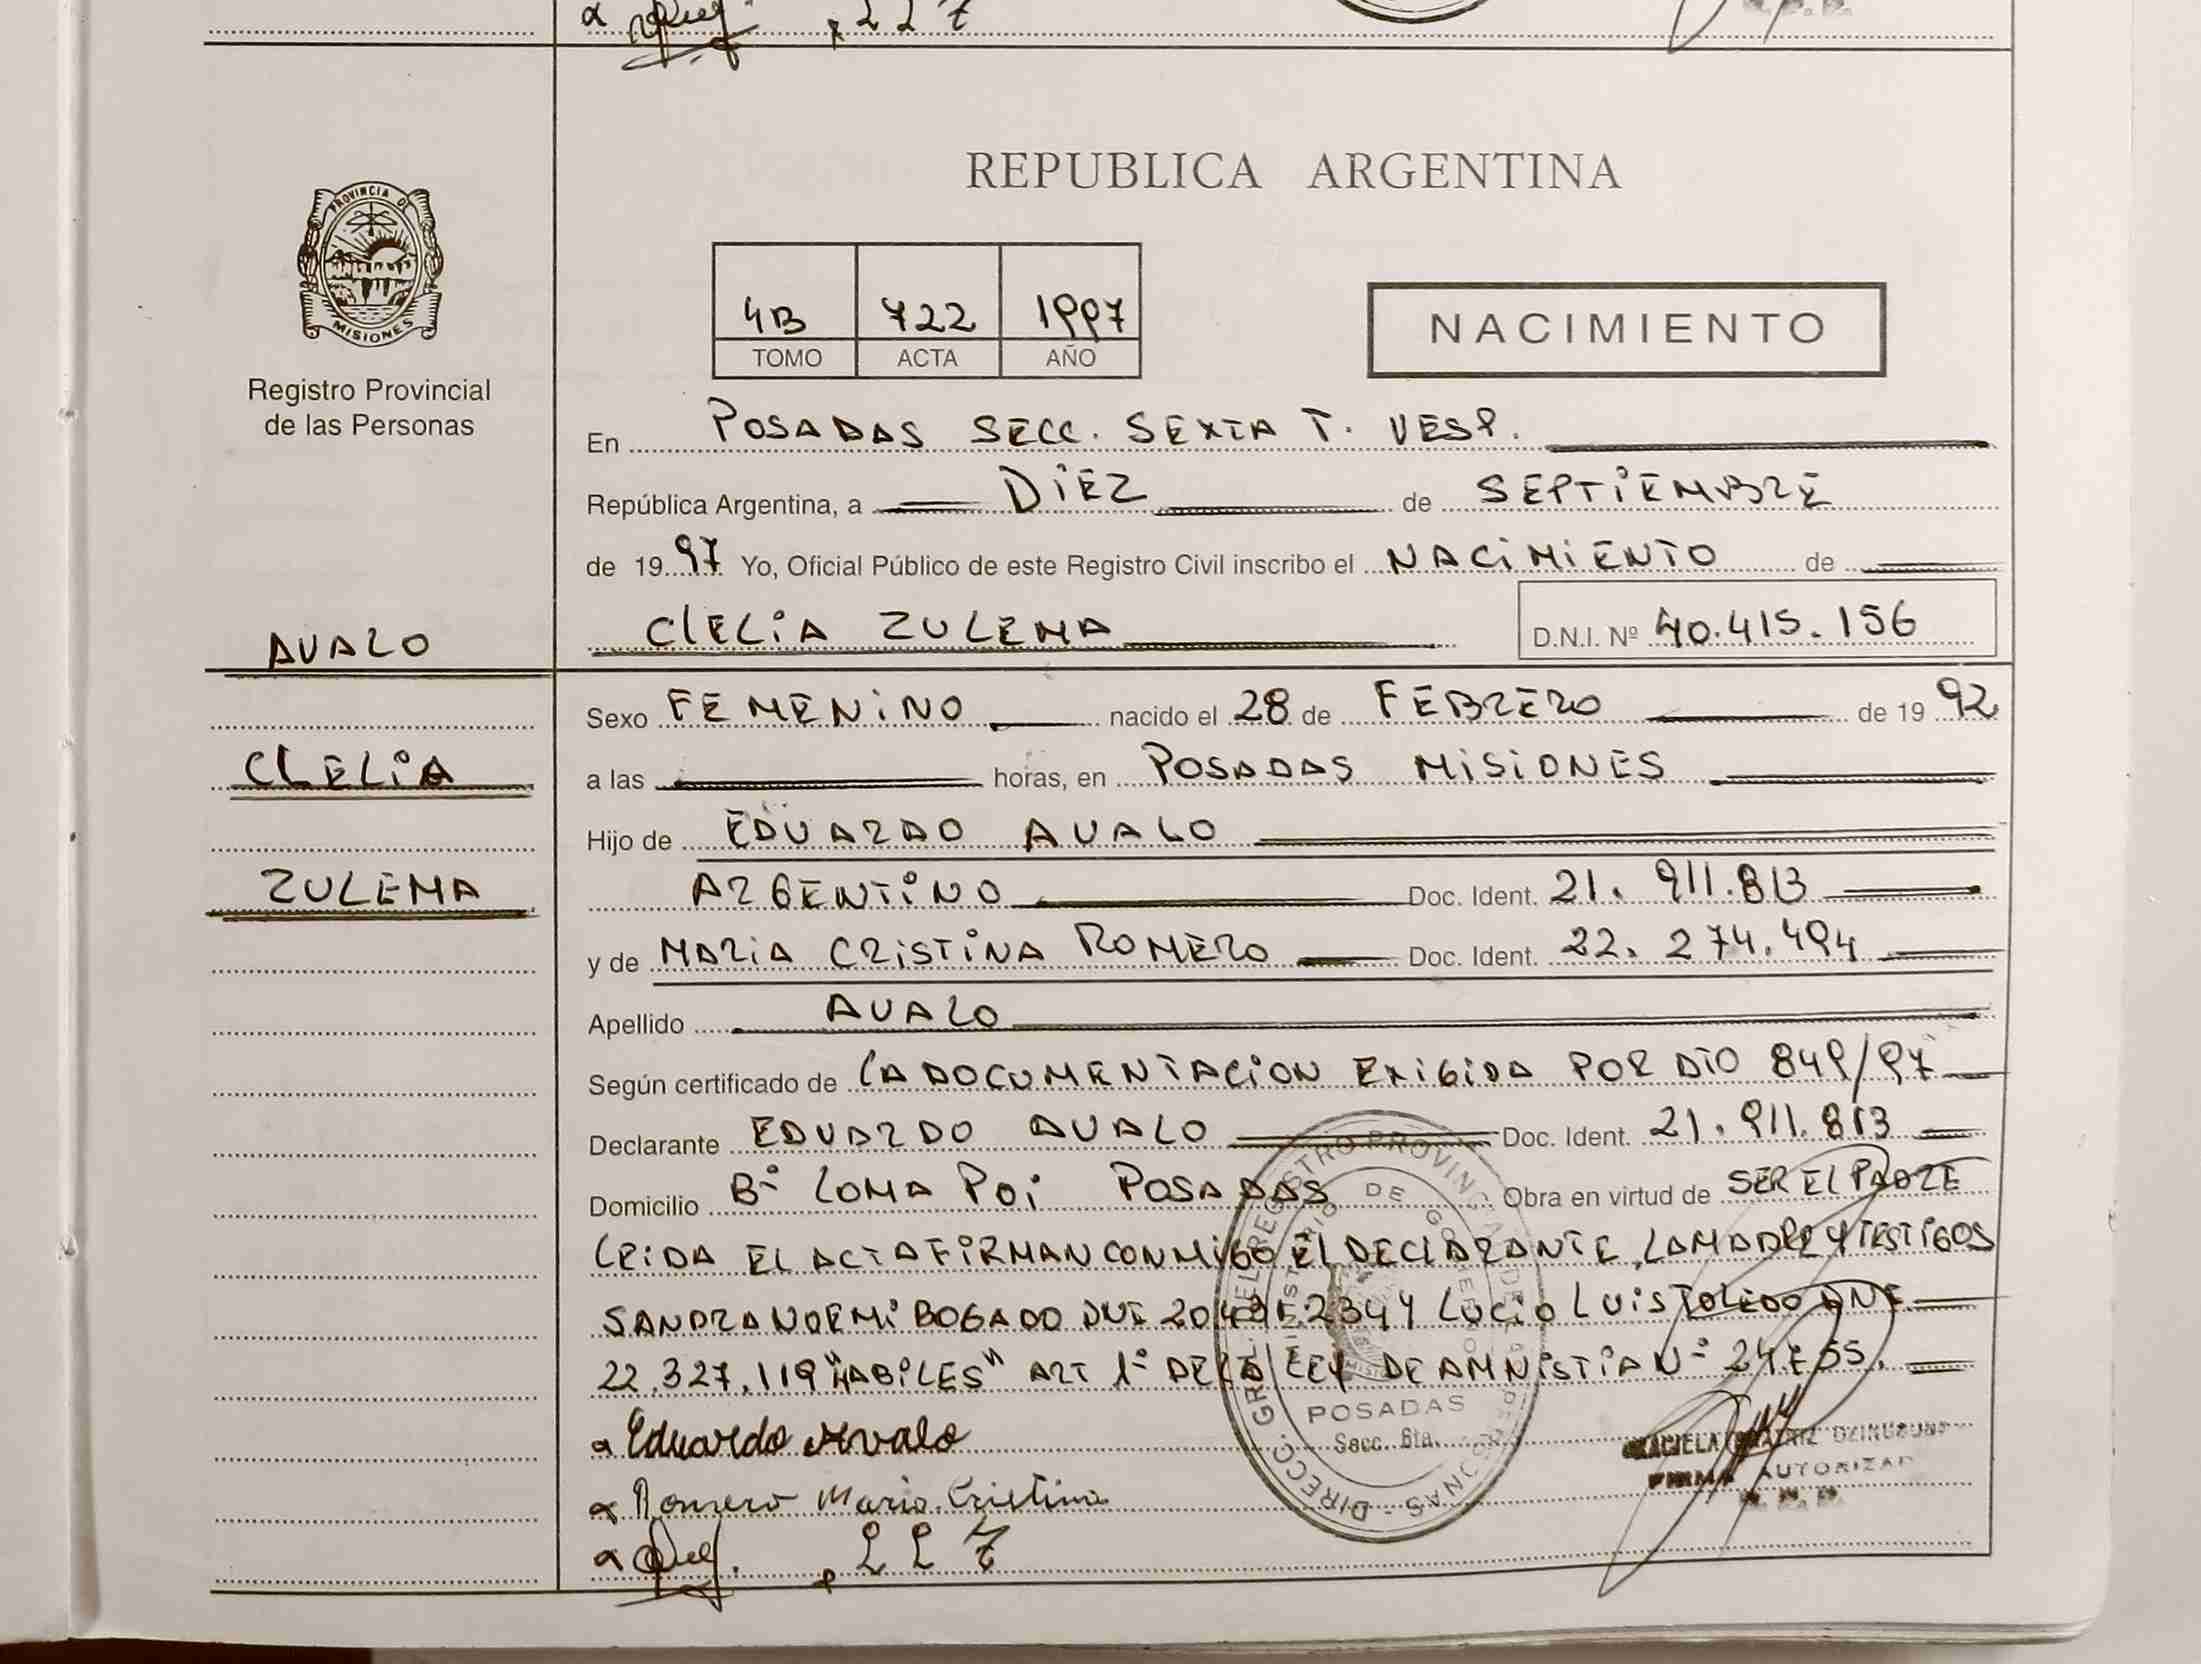 PROVINCIA DE
MISIONES
Registro Provincial
de las Personas
REPUBLICA ARGENTINA
4B 722 1997
TOMO ACTA AÑO
NACIMIENTO
En POSADAS SECC. SEXTA T. VESP.
República Argentina, a DIEZ de SEPTIEMBRE
de 1997 Yo, Oficial Público de este Registro Civil inscribo el NACIMIENTO de
CLELIA ZULEMA D.N.I. Nº 40.415.156
AVALO
CLELIA
ZULEMA
Sexo FEMENINO nacido el 28 de FEBRERO de 1992
a las horas, en POSADAS MISIONES
Hijo de EDUARDO AVALO
ARGENTINO Doc. Ident. 21.911.813
y de MARIA CRISTINA ROMERO Doc. Ident. 22.274.494
Apellido AVALO
Según certificado de LA DOCUMENTACION EXIGIDA POR DTO 849/97
Declarante EDUARDO AVALO Doc. Ident. 21.911.813
Domicilio Bº LOMA POI POSADAS Obra en virtud de SER EL PADRE
LEIDA EL ACTA FIRMAN CONMIGO EL DECLARANTE, LA MADRE Y TESTIGOS
SANDRA NOEMI BOGADO DNI LUCIO LUIS TOLEDO DNI
22.327.119 "HABILES" ART 1º DE LA LEY DE AMNISTIA Nº
Eduardo Avalo
Romero Maria Cristina
L L T
DIRECC. GRAL. DEL REGISTRO PROVINCIAL DE LAS PERSONAS
MINISTERIO DE GOBIERNO
POSADAS
Secc. 6ta.
GRACIELA BEATRIZ
FIRMA AUTORIZADA